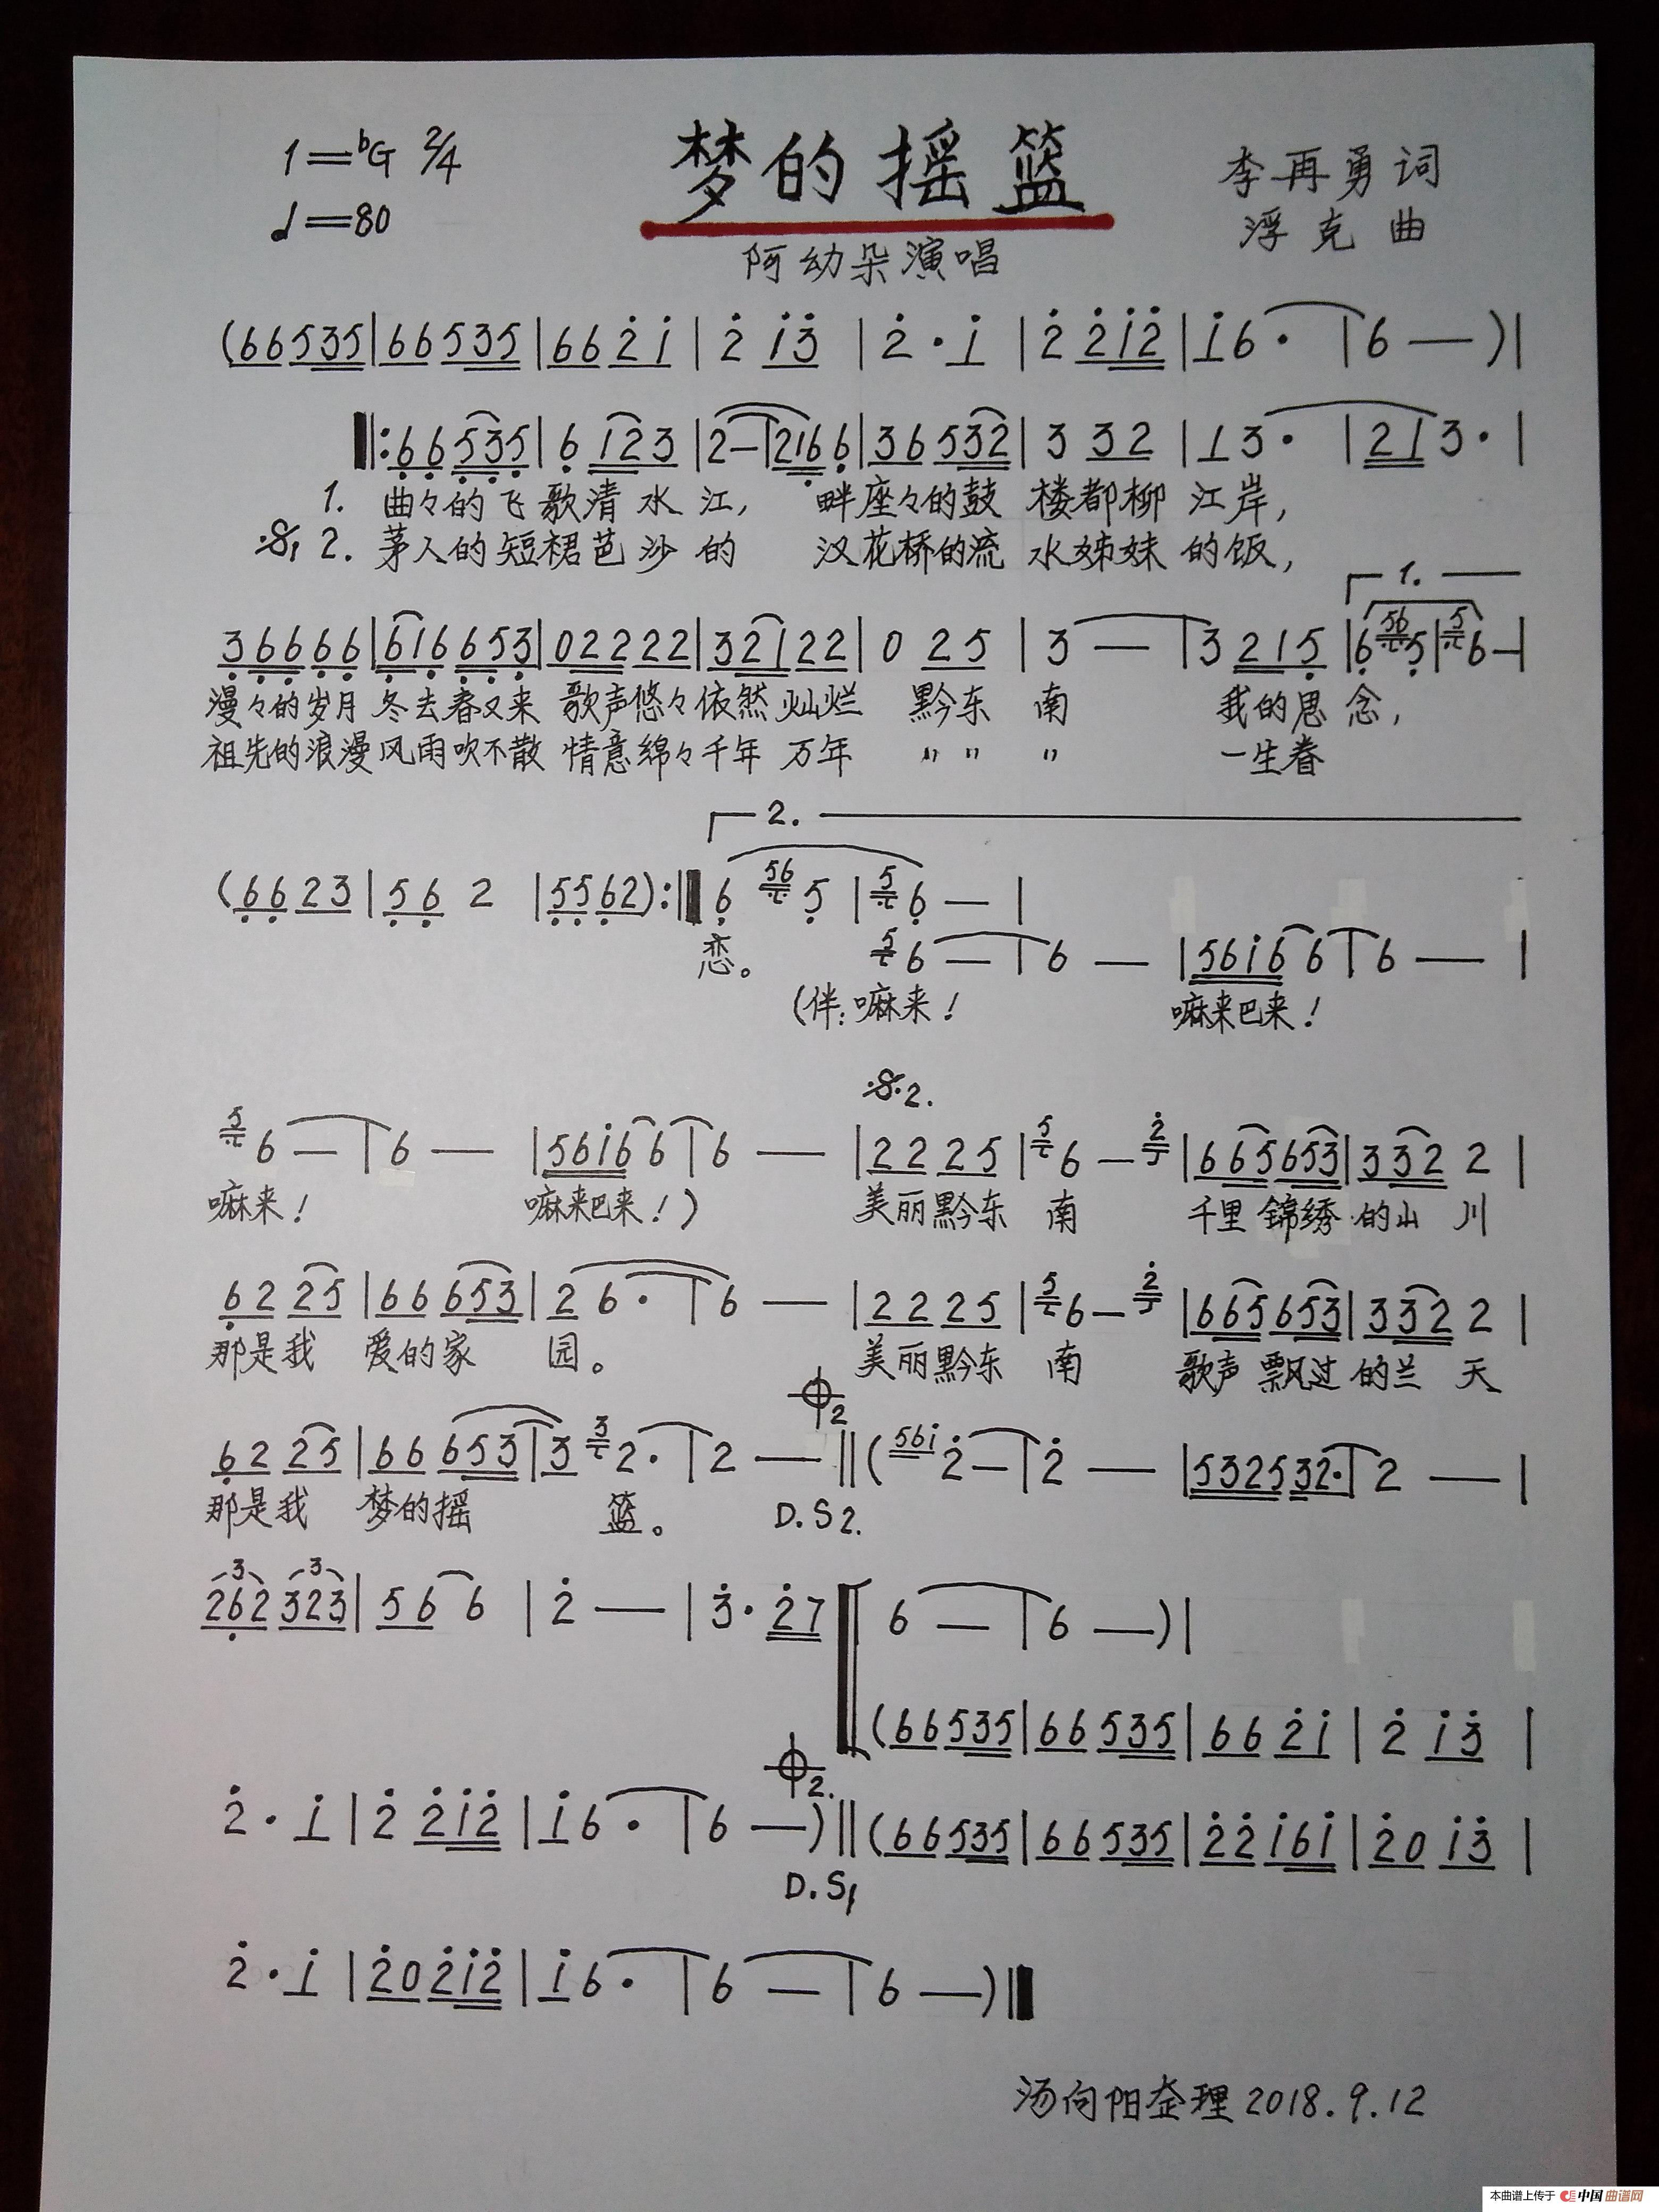 1=♭G 2/4
♩=80
梦的摇篮
李再勇词
浮克曲
阿幼朵演唱
(66535|66535|662̇1̇|2̇ 1̇3̇|2̇·1̇|2̇ 2̇1̇2̇|1̇6·|6—)|
‖:66535|6 123|2—|2166|36532|3 32|13·|213·|
1. 曲々的飞歌清水江, 畔座々的鼓楼都柳江岸,
𝄋1 2. 茅人的短裙芭沙的 汉花桥的流水姊妹的饭,
1.
36666|616653|022222|32122|0 25|3—|3 215|6 56 5|5 6—|
漫々的岁月冬去春又来 歌声悠々依然灿烂 黔东 南 我的思念,
祖先的浪漫风雨吹不散 情意绵々千年万年 〃〃 〃 一生眷
2.
(6623|56 2|5562):‖6 56 5|5 6—|
恋。
5 6—|6—|561̇66|6—|
(伴:嘛来! 嘛来巴来!
𝄋2.
5 6—|6—|561̇66|6—|2225|5 6—2̇|665653|332 2|
嘛来! 嘛来巴来!) 美丽黔东 南 千里锦绣的山 川
6225|66653|26·|6—|2225|5 6—2̇|665653|332 2|
那是我 爱的家 园。 美丽黔东 南 歌声飘过的兰 天
𝄌2
6225|66653|3 3 2·|2—‖(561̇ 2̇—|2̇—|5325 32·|2—|
那是我 梦的摇 篮。 D.S2.
3 3
262 323|56 6|2̇—|3̇·2̇7‖6—|6—)|
(66535|66535|662̇1̇|2̇ 1̇3̇|
𝄌2.
2̇·1̇|2̇ 2̇1̇2̇|1̇6·|6—)‖(66535|66535|2̇2̇1̇61̇|2̇0 1̇3̇|
D.S1
2̇·1̇|2̇02̇1̇2̇|1̇6·|6—|6—)‖
汤向阳奎理2018.9.12
本曲谱上传于 中国曲谱网